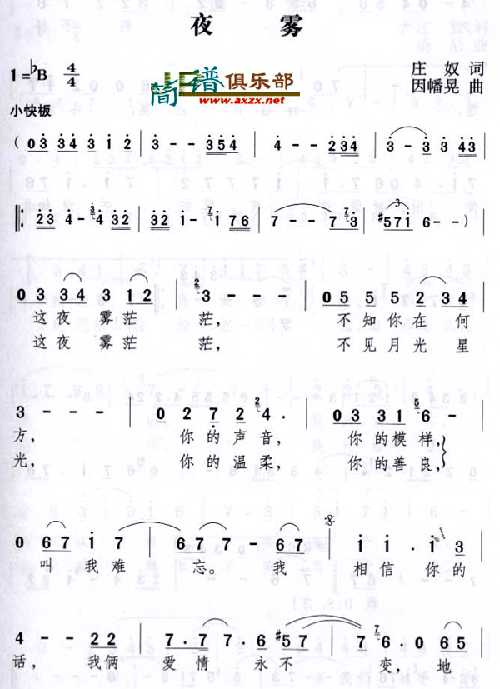 夜 雾
1=♭B 4/4
庄 奴 词
因幡晃 曲
简谱俱乐部
www.axzx.net
小快板
(0 3 34 3 1 2 | 3 - - 354 | 4 - - 234 | 3 - 3 3 43 |
23 4 - 4 32 | 32 1 - 1 7 6 | 7 - - 7 3 | #571 6 - -) |
0 3 3 4 3 1 2 | 3 - - - | 0 5 5 5 2 3 4 |
这夜 雾茫 茫, 不知你在 何
这夜 雾茫 茫, 不见月光 星
3 - - - | 0 2 7 2 4 . | 0 3 3 1 6 - |
方, 你的声音, 你的模样,
光, 你的温柔, 你的善良,
0 6 7 1 7 | 6 7 7 - | 1 1 . 1 3 |
叫 我难 忘。 我 相信 你的
4 - - 2 2 | 7 . 7 . 6 #5 7 | 7 6 . 0 6 5 |
话, 我俩 爱情 永不 变, 地